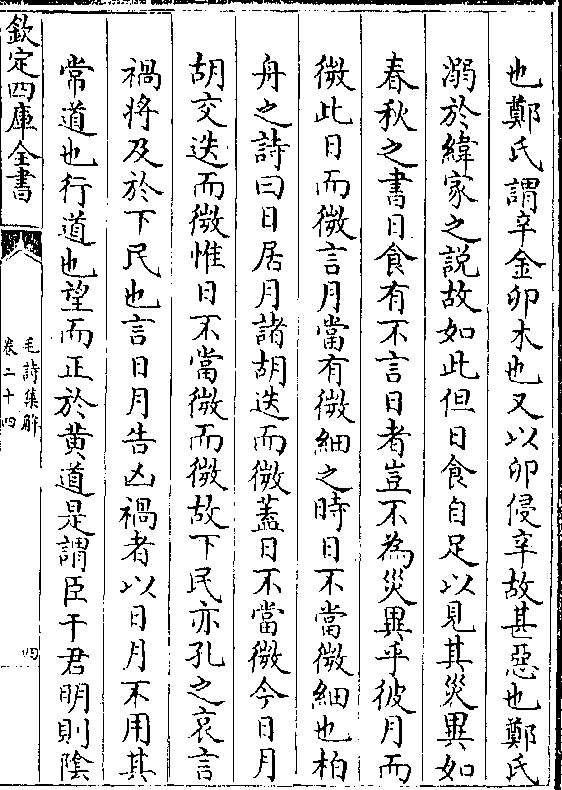 也鄭氏謂辛金卯木也又以卯侵辛故甚惡也鄭氏
溺於緯家之說故如此但日食自足以見其災異如
春秋之書日食有不言日者豈不為災異乎彼月而
微此日而微言月當有微細之時日不當微細也柏
舟之詩曰日居月諸胡迭而微蓋日不當微今日月
胡交迭而微惟日不當微而微故下民亦孔之哀言
禍將及於下民也言日月告凶禍者以日月不用其
常道也行道也望而正於黄道是謂臣干君明則陰
欽定四庫全書
毛詩集解
卷二十四
四